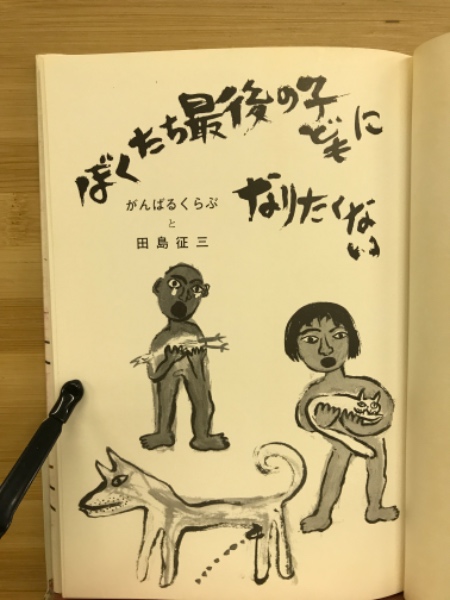 ぼくたち最後の子どもに
なりたくない
がんばるくらぶ
と
田島征三